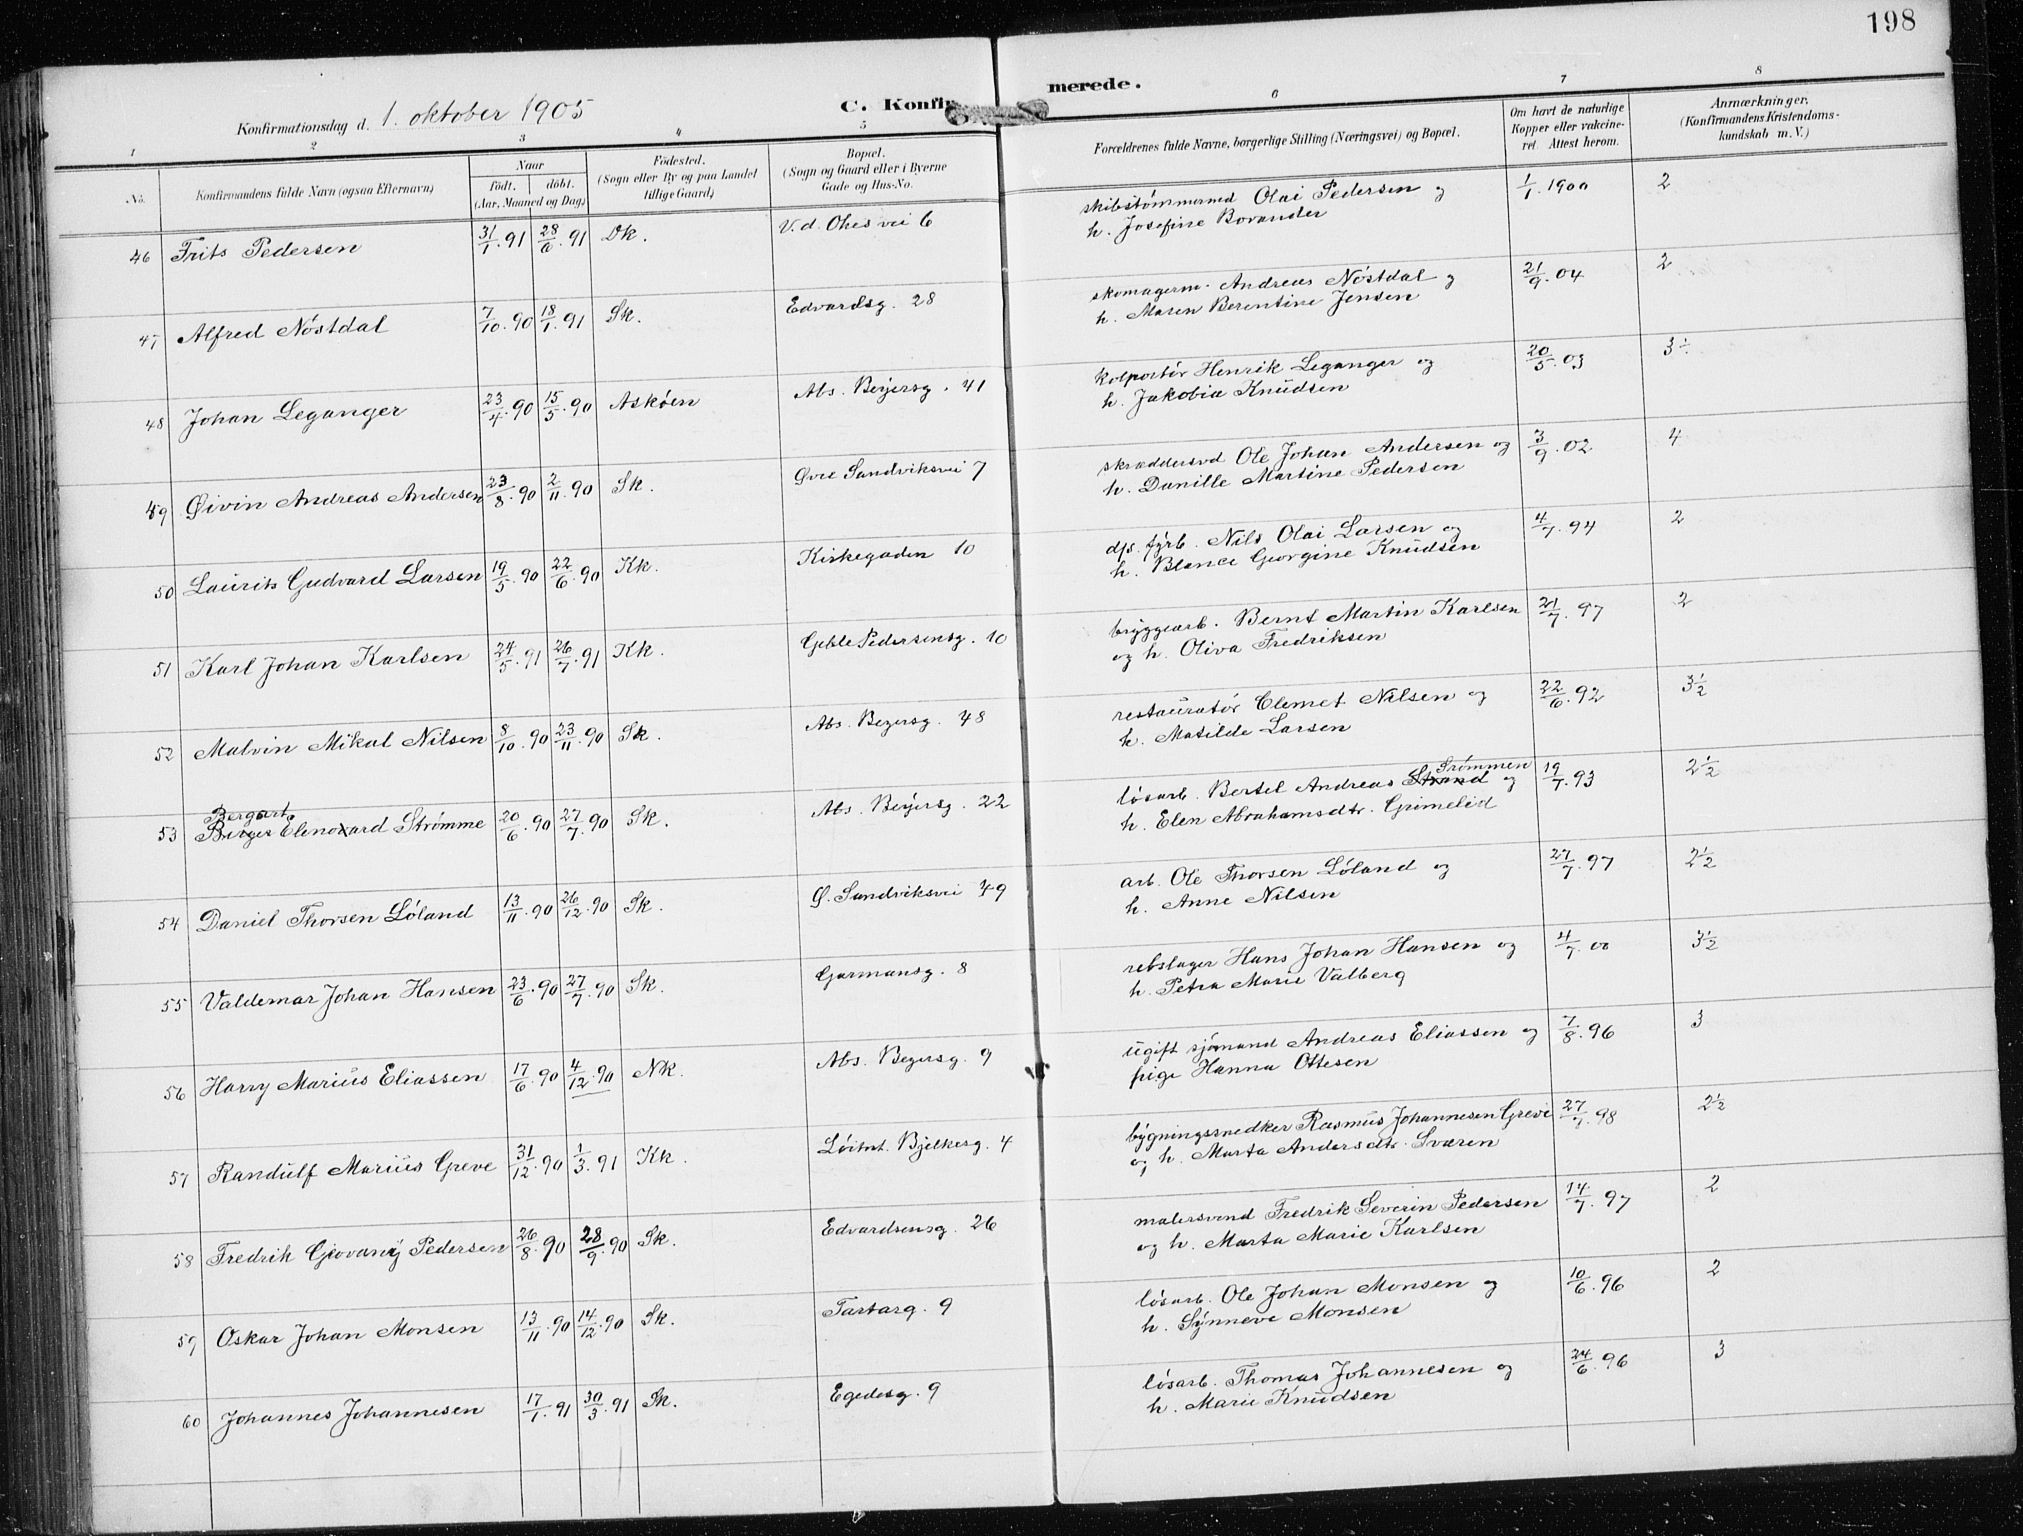 198
Konfirmationsdag d. 1. oktober 1905
C. Konfir merede.
1 2 3 4 5 6 7 8
No. Konfirmandens fulde Navn (ogsaa Efternavn) Naar født. døbt. (Aar, Maaned og Dag) Fødested. (Sogn eller By og paa Landet tillige Gaard) Bopæl. (Sogn og Gaard eller i Byerne Gade og Hus-No. Forældrenes fulde Navne, borgerlige Stilling (Næringsvei) og Bopæl. Om havt de naturlige Kopper eller vakcineret. Attest herom. Anmærkninger, (Konfirmandens Kristendomskundskab m. V.)
46 Frits Pedersen 31/1.91 28/6.91 Dk. V. d. Ohesvei 6 skibstømmermd Olai Pedersen og 1/1.1900 2
h. Josefine Borander
47 Alfred Nöstdal 7/10.90 18/1.91 Sk. Edvardsg. 28 skomagerm. Andreas Nöstdal og 21/9.04 2
h. Maren Berentine Jensen
48 Johan Leganger 23/4.90 15/5.90 Askøen Abs. Beyersg. 41 kolportör Henrik Leganger og 20/5.03
h. Jakobia Knudsen
49 Øivin Andreas Andersen 23/8.90 2/11.90 Sk. Øvre Sandviksvei 7 skræddersvd Ole Johan Andersen og 3/9.02 4
h. Danille Martine Pedersen
50 Laurits Gudvard Larsen 19/5.90 22/6.90 Kk. Kirkegaden 10 dps. fyrb. Nils Olai Larsen og 4/7.94 2
h. Blance Georgine Knudsen
51 Karl Johan Karlsen 24/5.91 26/7.91 Kk. Geble Pedersensg. 10 bryggearb. Bernt Martin Karlsen 21/7.97 2
og h. Oliva Fredriksen
52 Malvin Mikal Nilsen 8/10.90 23/11.90 Sk. Abs. Beyersg. 48 restauratör Clemet Nilsen og 22/6.92 3½
h. Matilde Larsen
Bergart Strømmen
53 Elenovard Strømme 20/6.90 27/7.90 Sk. Abs. Beyersg. 22 lösarb. Bertel Andreas Strand og 19/7.93 2½
h. Elen Abrahamsdtr. Grimelid
54 Daniel Thorsen Löland 13/11.90 26/12.90 Sk. Ø. Sandviksvei 49 arb. Ole Thorsen Löland og 27/7.97 2½
h. Anne Nilsen
55 Valdemar Johan Hansen 23/6.90 27/7.90 Sk. Garmansg. 8 rebslager Hans Johan Hansen og 4/7.00 3½
h. Petra Marie Valberg
56 Harry Marius Eliassen 17/6.90 4/12.90 Nk. Abs. Beyersg. 9 ugift sjömand Andreas Eliassen og 7/8.96 3
pige Hanna Ottesen
57 Randulf Marius Greve 31/12.90 1/3.91 Kk. Løitnt. Bjelkesg. 4 bygningssnedker Rasmus Johannesen Greve 27/7.98 2½
og h. Marta Andersdtr. Sværen
58 Fredrik Giovany Pedersen 26/8.90 28/9.90 Sk. Edvardsensg. 26 malersvend Fredrik Severin Pedersen 14/7.97 2
og h. Marta Marie Karlsen
59 Oskar Johan Monsen 13/11.90 14/12.90 Sk. Tartarg. 9 lösarb. Ole Johan Monsen og 10/6.96 2
h. Synneve Monsen
60 Johannes Johannesen 17/1.91 30/3.91 Sk. Egedesg. 9 lösarb. Thomas Johannesen og 24/6.96 3
h. Marie Knudsen